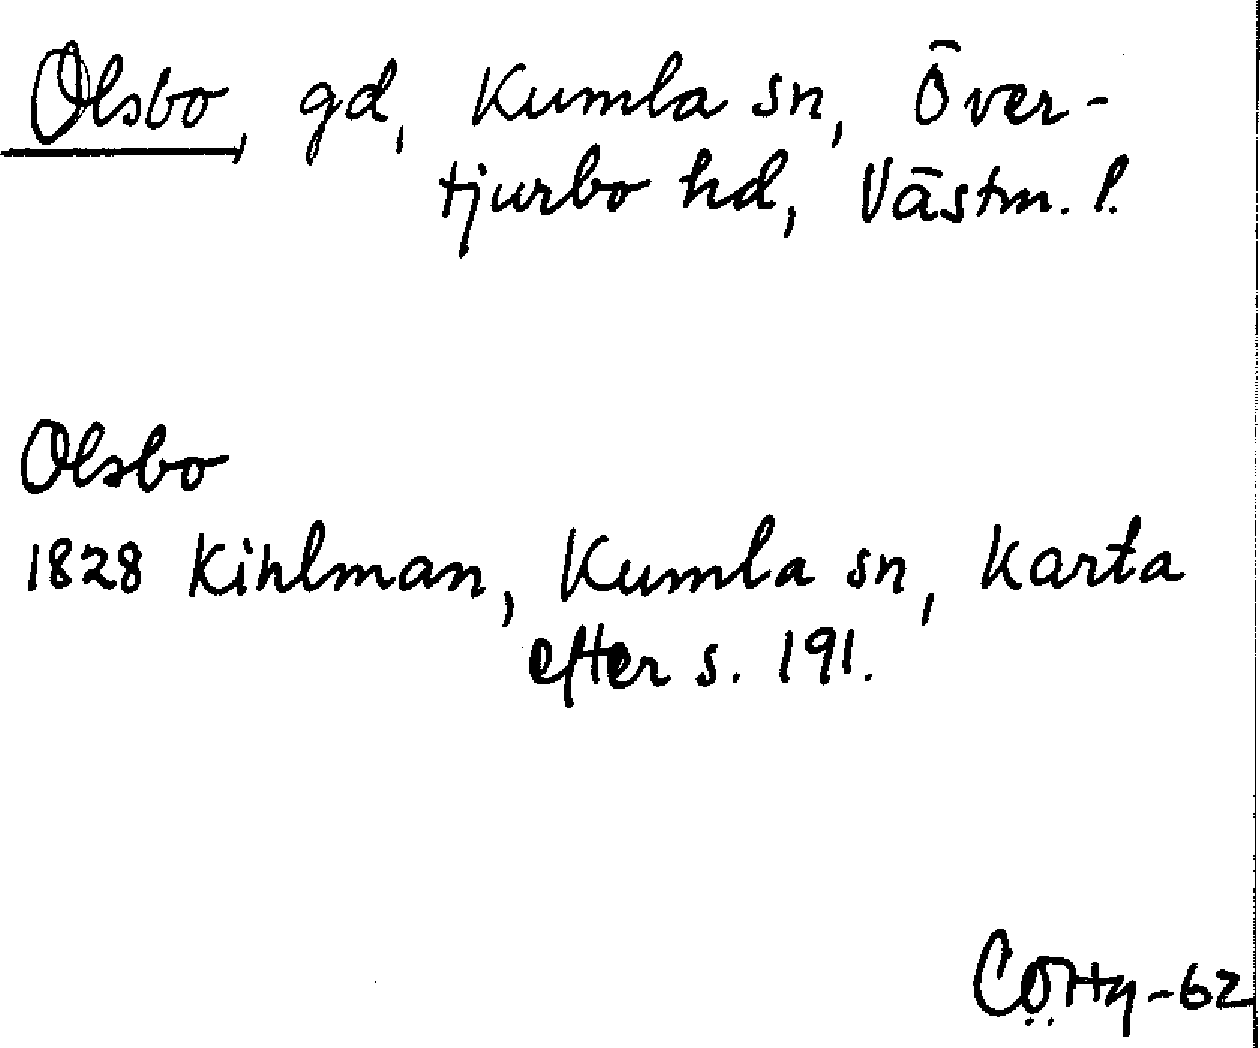 Olsbo, gd, Kumla sn, Över-
tjurbo hd, Västm. l.
Olsbo
1828 Kihlman, Kumla sn, Karta
efter s. 191.
-62